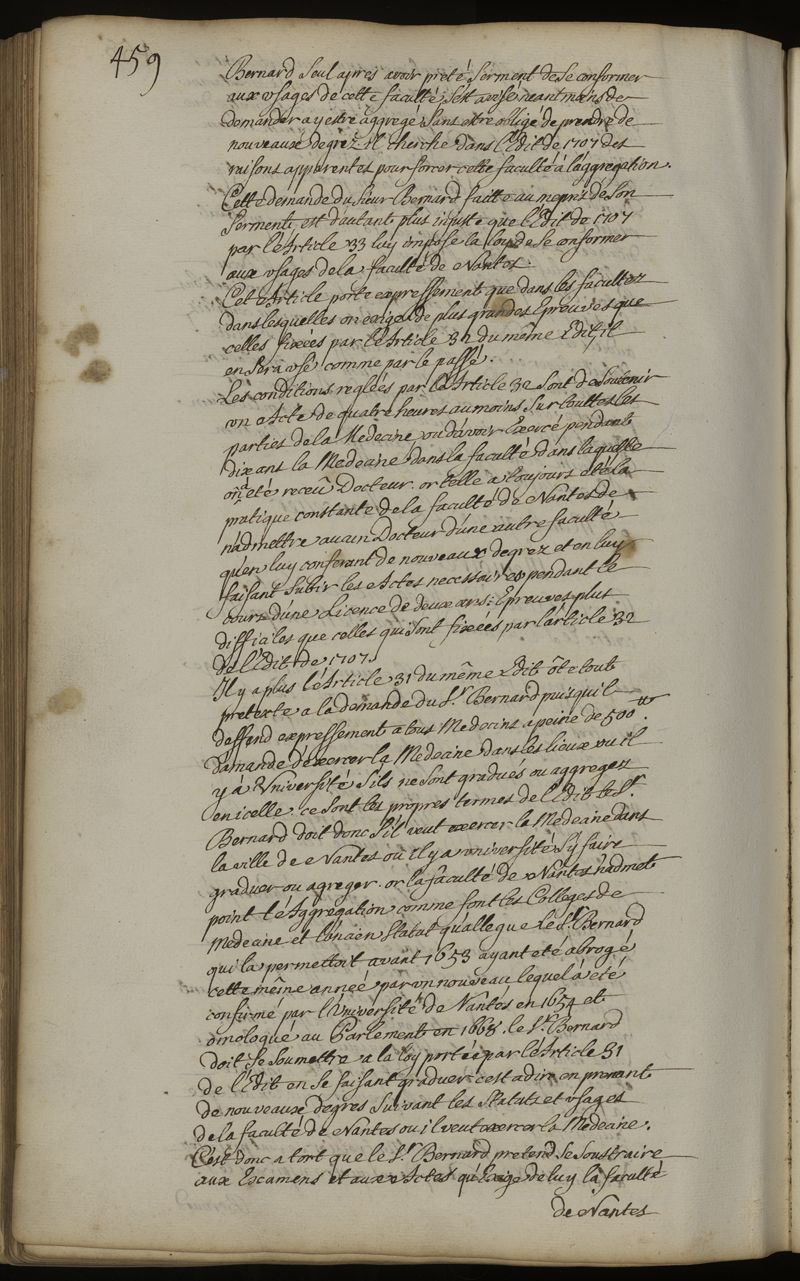 459
Bernard seul apres avoir preté serment de se conformer
aux usages de cette faculté s'est avisé neantmoins de
demander a y estre aggregé sans estre obligé de prendre de
nouveaux degrez. il cherche dans l'Edit de 1707 des
raisons apparentes pour forcer cette faculté à l'aggregation.
Cette demande du sieur Bernard faitte au mepris de son
serment, est d'autant plus injuste que l'Edit de 1707
par l'Article 33 luy impose la loy de se conformer
aux usages de la faculté de Nantes.
Cet Article porte expressement que dans les facultez
dans lesquelles on exige de plus grandes Epreuves que
celles fixées par l'Article 32 du même Edit, il
en sera usé comme par le passé.
Les conditions reglées par l'Article 32 sont de soutenir
un Acte de quatre heures au moins sur touttes les
parties de la Medecine, ou d'avoir Exercé pendant
dix ans la Medecine dans la faculté dans laquelle
on a été receu Docteur. or telle a toujours été la
pratique constante de la faculté de Nantes de
n'admettre aucun Docteur d'une autre faculté
qu'en luy conferant de nouveaux degrez et en luy
faisant subir les Actes necessaires pendant le
cours d'une Licence de deux ans; Epreuves plus
difficiles que celles qui sont fixées par l'article 32
de l'Edit de 1707.
Il y a plus l'Article 31 du même Edit ôte tout
pretexte a la demande du Sr. Bernard puisqu'il
deffend expressement a tous Medecins a peine de 500 tt.
d'amande d'exercer la Medecine dans les lieux ou il
y à Université s'ils ne sont gradués ou aggregez
en icelle. ce sont les propres termes de l'Edit. le Sr.
Bernard doit donc s'il veut exercer la Medecine dans
la ville de Nantes ou il y a université s'y faire
graduer ou agreger. or la faculté de Nantes n'admet
point l'Aggregation comme font les Colleges de
Medecine et l'ancien Statut qu'allegue le Sr. Bernard
qui la permettoit avant 1653 ayant eté abrogé
cette même année par un nouveau lequel a été
confirmé par l'Université de Nantes en 1654 et
omologué au Parlement en 1668. le Sr. Bernard
doit se soumettre a la loy portée par l'Article 31
de l'Edit en se faisant graduer c'est a dire en prenant
de nouveaux degres suivant les Statuts et usages
de la faculté de Nantes ou il veut exercer la Medecine.
C'est donc a tort que le Sr. Bernard pretend se soustraire
aux Examens et aux Actes qu'Exige de luy la faculté
de Nantes